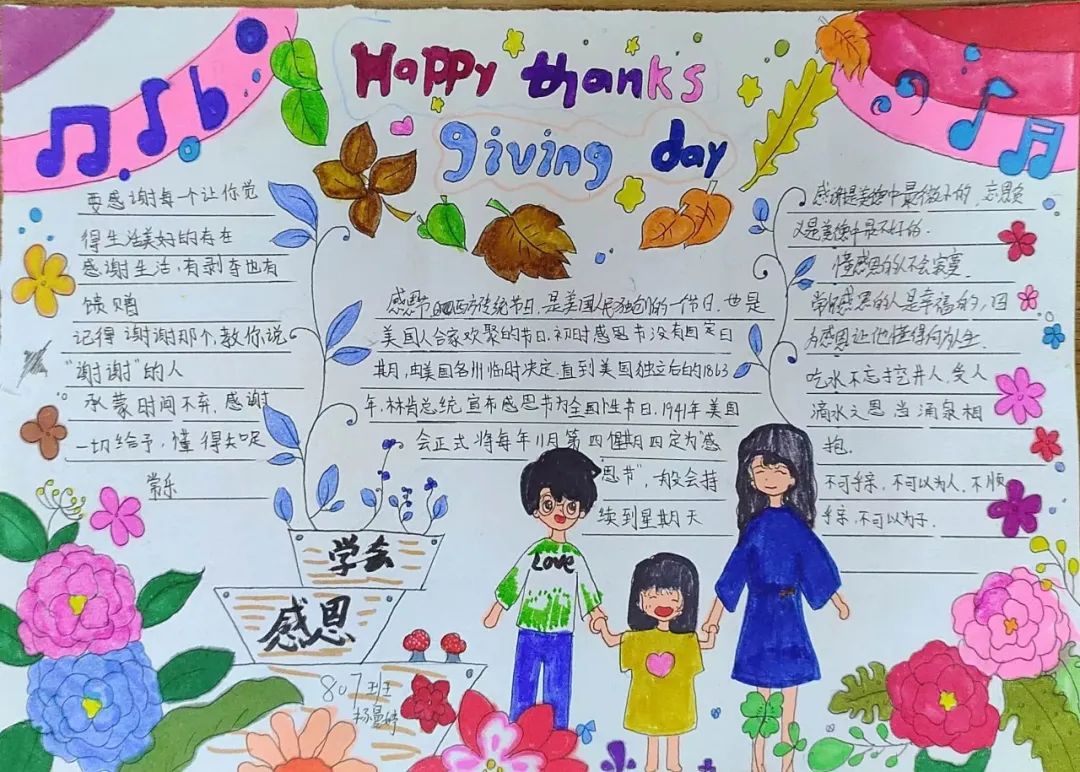 Happy thanks
giving day
要感谢每个让你觉
得生活美好的存在
感谢生活,有剥夺也有
馈赠
记得谢谢那个教你说
"谢谢"的人
承蒙时间不弃,感谢
一切给予,懂得去呢
常乐
感恩节是西方传统节日,是美国人民独创的一个节日,也是
美国人合家欢聚的节日.初时感恩节没有固定日
期,由美国各州临时决定,直到美国独立后的1863
年,林肯总统宣布感恩节为全国性节日,1941年美国
会正式将每年11月第四个星期四定为"感
恩节",一般会持
续到星期天
感谢是美德中最微不的,忘恩负
义是美德中最不好的.
懂感恩的人不会寂寞.
常怀感恩的人是幸福的,因
为感恩让他懂得何为人生.
吃水不忘挖井人,受人
滴水之恩当涌泉相
抱.
不可亲,不可以为人,不顺
亲,不可以为子.
学会
感恩
Love
807班